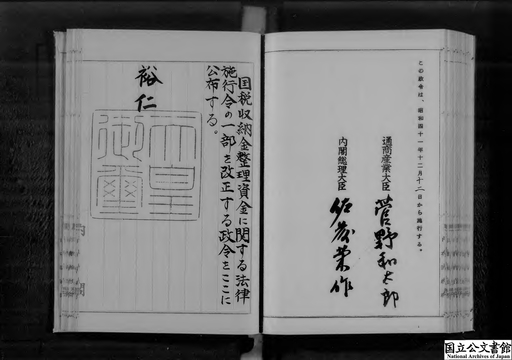 この政令は、昭和四十一年十二月十二日から施行する。
通商産業大臣 菅野和太郎
内閣総理大臣 佐藤栄作
国税収納金整理資金に関する法律
施行令の一部を改正する政令をここに
公布する。
裕仁
天皇
御璽
国立公文書館
National Archives of Japan